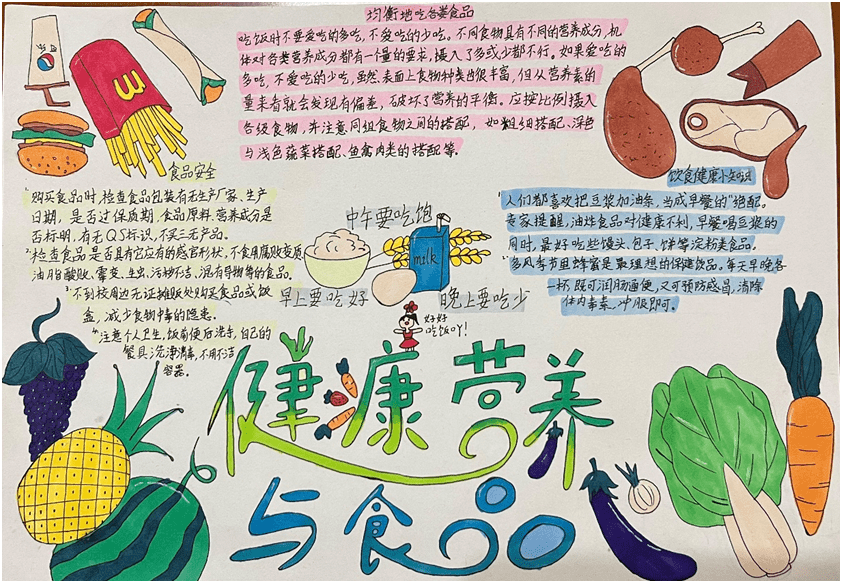 均衡地吃各类食品
吃饭时不要爱吃的多吃,不爱吃的少吃。不同食物具有不同的营养成分,机
体对各类营养成分都有一个量的要求,摄入了多或少都不行。如果爱吃的
多吃,不爱吃的少吃,虽然表面上食物种类也很丰富,但从营养素的
量来看就会发现有偏差,破坏了营养的平衡。应按比例摄入
各级食物,并注意同组食物之间的搭配,如粗细搭配、深色
与浅色蔬菜搭配、鱼禽肉类的搭配等。
食品安全
1、购买食品时,检查食品包装有无生产厂家、生产
日期,是否过保质期,食品原料,营养成分是
否标明,有无QS标识,不买三无产品。
2、检查食品是否具有它应有的感官形状,不食用腐败变质
油脂酸败、霉变、生虫、污秽不洁、混有异物等的食品。
3、不到校周边无证摊贩处购买食品或饭
盒,减少食物中毒的隐患。
4、注意个人卫生,饭前便后洗手,自己的
餐具洗净消毒,不用不洁
容器。
饮食健康小知识
1、人们都喜欢把豆浆加油条,当成早餐的"绝配。
专家提醒,油炸食品对健康不利,早餐喝豆浆的
同时,最好吃些馒头,包子,饼等淀粉类食品。
2、多风季节里蜂蜜是最理想的保健饮品。每天早晚各
一杯,既可润肠通便,又可预防感冒,清除
体内毒素。冲服即可。
中午要吃饱
milk
早上要吃好
晚上要吃少
好好
吃饭吖!
健康营养
与食品